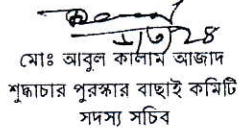 মোঃ আবুল কালাম আজাদ
শুদ্ধাচার পুরস্কার বাছাই কমিটি
সদস্য সচিব